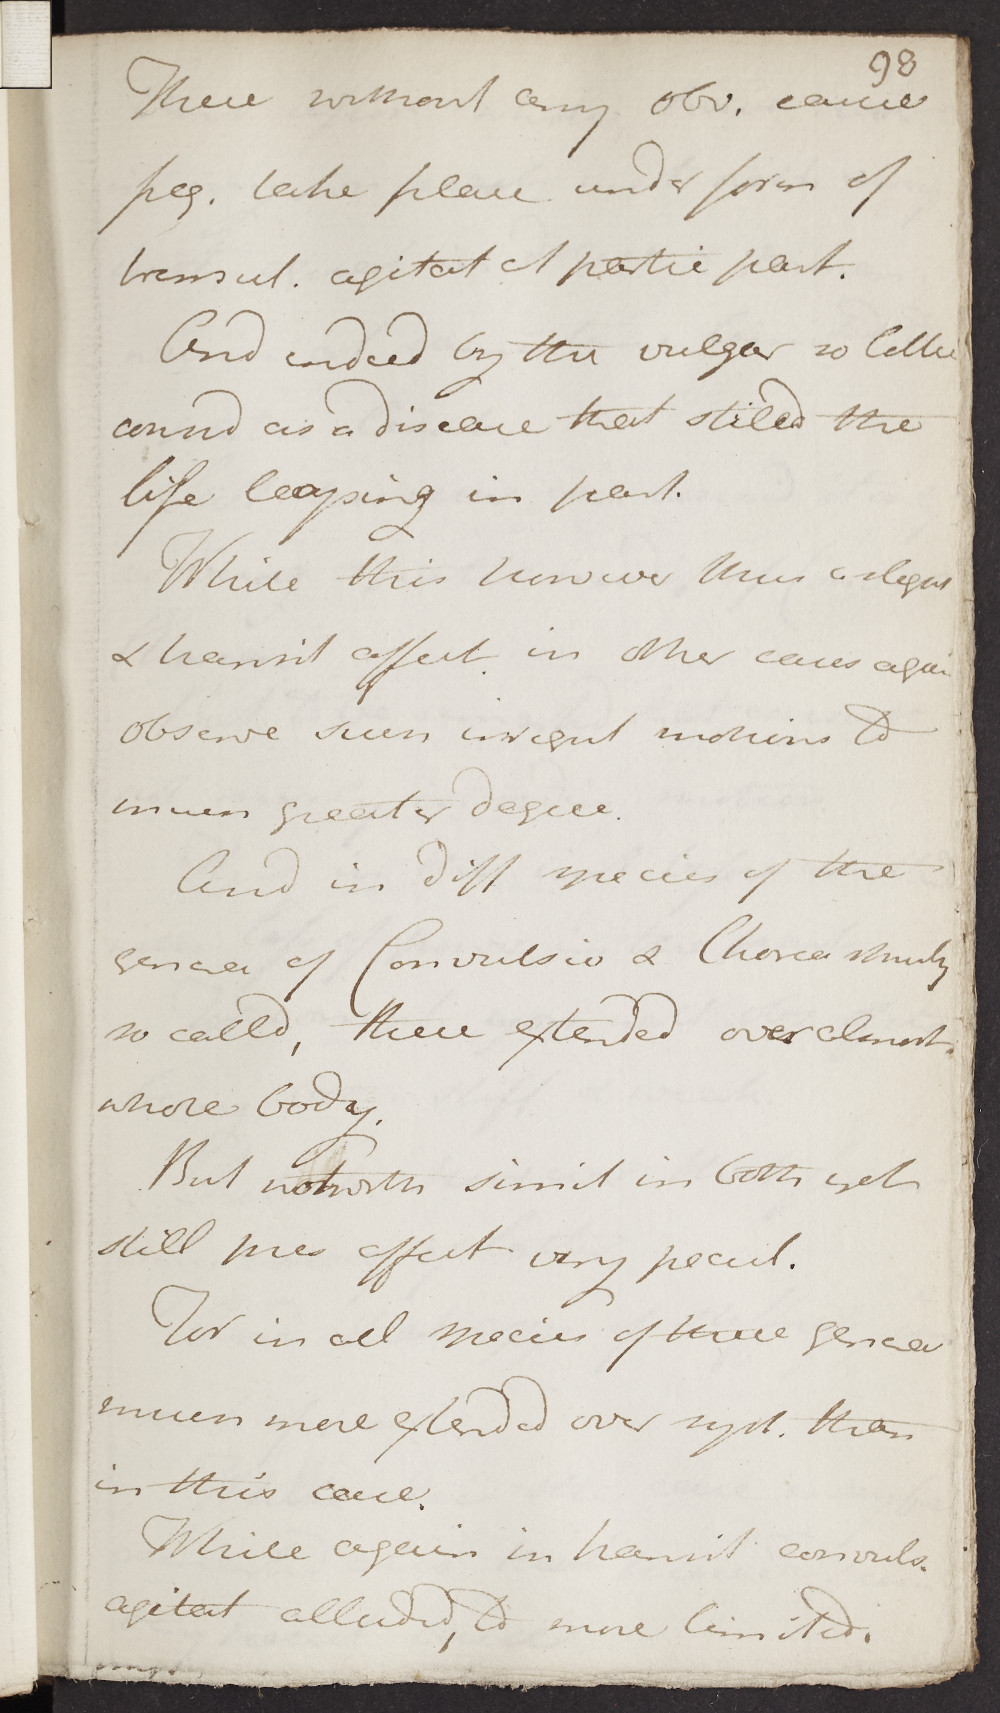 98
These without any obv. cause
freq. take place under form of
tremul. agitat of partic part.
And indeed by the vulgar so little
consid as a disease that stiled the
life leaping in part.
While this however thus a slight
& transit affect. in other cases again
observe such irregul motions to
much greater degree.
And in diff species of the
genera of Convulsio & Chorea strictly
so called, these extended over almost
whole body.
But notwith simil in both yet
still pres affect very pecul.
For in all species of these genera
much more extended over syst. than
in this case.
While again in transit convuls.
agitat alluded to more limited.